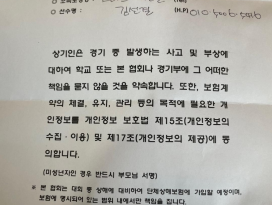 ○ 선수명 :
(H.P)
상기인은 경기 중 발생하는 사고 및 부상에
대하여 학교 또는 본 협회나 경기부에 그 어떠한
책임을 묻지 않을 것을 약속합니다. 또한, 보험계
약의 체결, 유지, 관리 등의 목적에 필요한 개
인정보를 개인정보 보호법 제15조(개인정보의
수집·이용) 및 제17조(개인정보의 제공)에 동
의합니다.
(미성년자인 경우 반드시 부모님 서명)
※ 본 협회는 대회 중 상해에 대비하여 단체상해보험에 가입할 예정이며,
보험에 명시되어 있는 범위 내에서만 책임을 집니다.